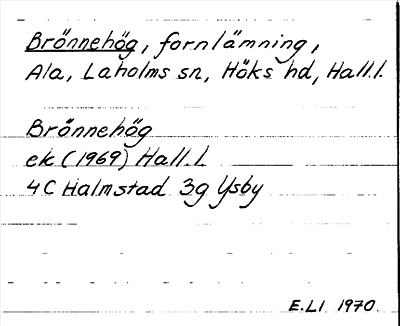 Brönnehög, fornlämning,
Ala, Laholms sn, Höks hd, Hall.l.
Brönnehög
ek (1969) Hall.l
4C Halmstad 3g Ysby
E.LI 1970